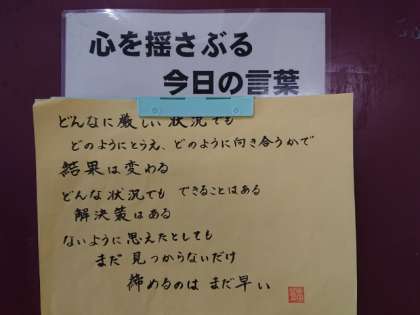 心を揺さぶる
今日の言葉
どんなに厳しい状況でも
どのようにとらえ、どのように向き合うかで
結果は変わる
どんな状況でも できることはある
解決策はある
ないように思えたとしても
まだ 見つからないだけ
諦めるのは まだ早い